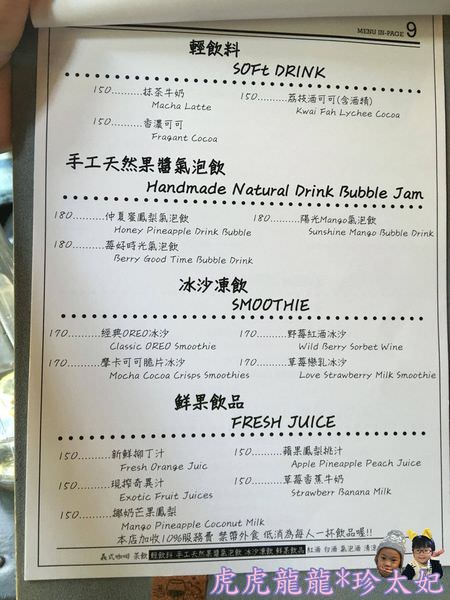 MENU IN-PAGE 9
輕飲料
SOFt DRINK
150..........抹茶牛奶
Macha Latte
150..........荔枝酒可可(含酒精)
Kwai Fah Lychee Cocoa
150..........香濃可可
Fragant Cocoa
手工天然果醬氣泡飲
Handmade Natural Drink Bubble Jam
180..........仲夏蜜鳳梨氣泡飲
Honey Pineapple Drink Bubble
180..........陽光Mango氣泡飲
Sunshine Mango Bubble Drink
180..........莓好時光氣泡飲
Berry Good Time Bubble Drink
冰沙凍飲
SMOOTHIE
170..........經典OREO冰沙
Classic OREO Smoothie
170..........野莓紅酒冰沙
Wild Berry Sorbet Wine
170..........摩卡可可脆片冰沙
Mocha Cocoa Crisps Smoothies
170..........草莓戀乳冰沙
Love Strawberry Milk Smoothie
鮮果飲品
FRESH JUICE
150..........新鮮柳丁汁
Fresh Orange Juic
150..........蘋果鳳梨桃汁
Apple Pineapple Peach Juice
150..........現搾奇異汁
Exotic Fruit Juices
150..........草莓香蕉牛奶
Strawberr Banana Milk
150..........椰奶芒果鳳梨
Mango Pineapple Coconut Milk
本店加收10%服務費 禁帶外食 低消為每人一杯飲品喔!!
義式咖啡 茶飲 輕飲料 手工天然果醬氣泡飲 冰沙凍飲 鮮果飲品 紅酒 白酒 氣泡酒 清酒
虎虎龍龍*珍太妃